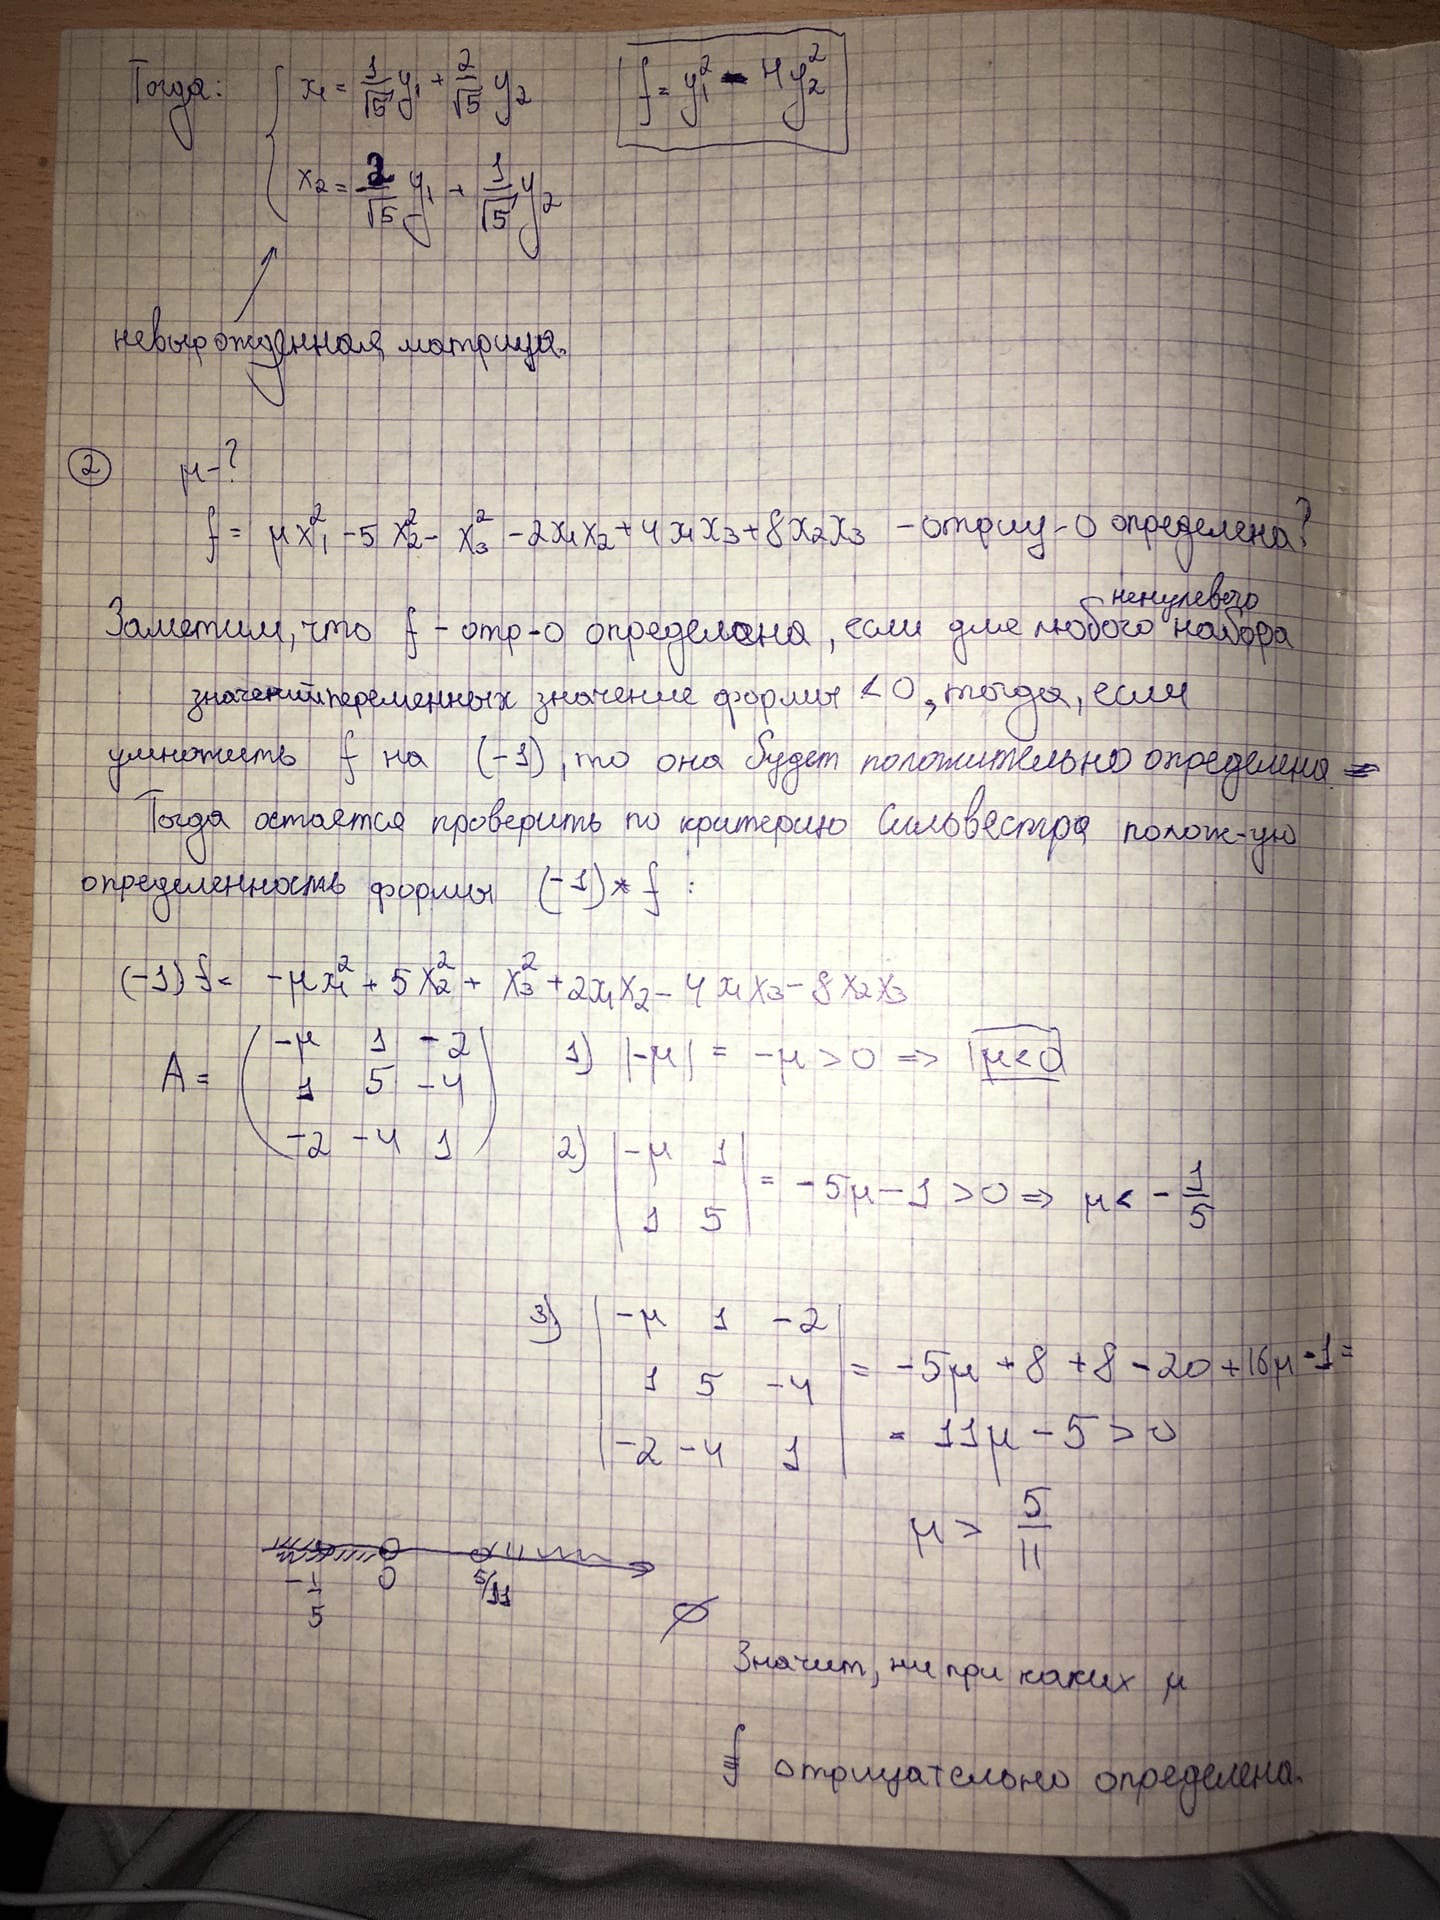 Тогда: { x₁ = 1/√5 y₁ + 2/√5 y₂   f = y₁² - 4y₂²
x₂ = 2/√5 y₁ + 1/√5 y₂
невырожденная матрица.
② μ-?
f = μx₁² - 5x₂² - x₃² - 2x₁x₂ + 4x₁x₃ + 8x₂x₃ - отриц-о определена?
ненулевого
Заметим, что f - отр-о определена, если для любого набора
значений переменных значение формы < 0, тогда, если
умножить f на (-1), то она будет положительно определена.
Тогда остается проверить по критерию Сильвестра полож-ую
определенность формы (-1)*f:
(-1)f = -μx₁² + 5x₂² + x₃² + 2x₁x₂ - 4x₁x₃ - 8x₂x₃
A = ( -μ 1 -2   1) |-μ| = -μ > 0 => μ < 0
1 5 -4
-2 -4 1 )   2) | -μ 1
1 5 | = -5μ - 1 > 0 => μ < - 1/5
3) | -μ 1 -2
1 5 -4 | = -5μ + 8 + 8 - 20 + 16μ - 1 =
-2 -4 1 | = 11μ - 5 > 0
μ > 5/11
-1/5 0 5/11
∅
Значит, ни при каких μ
f отрицательно определена.